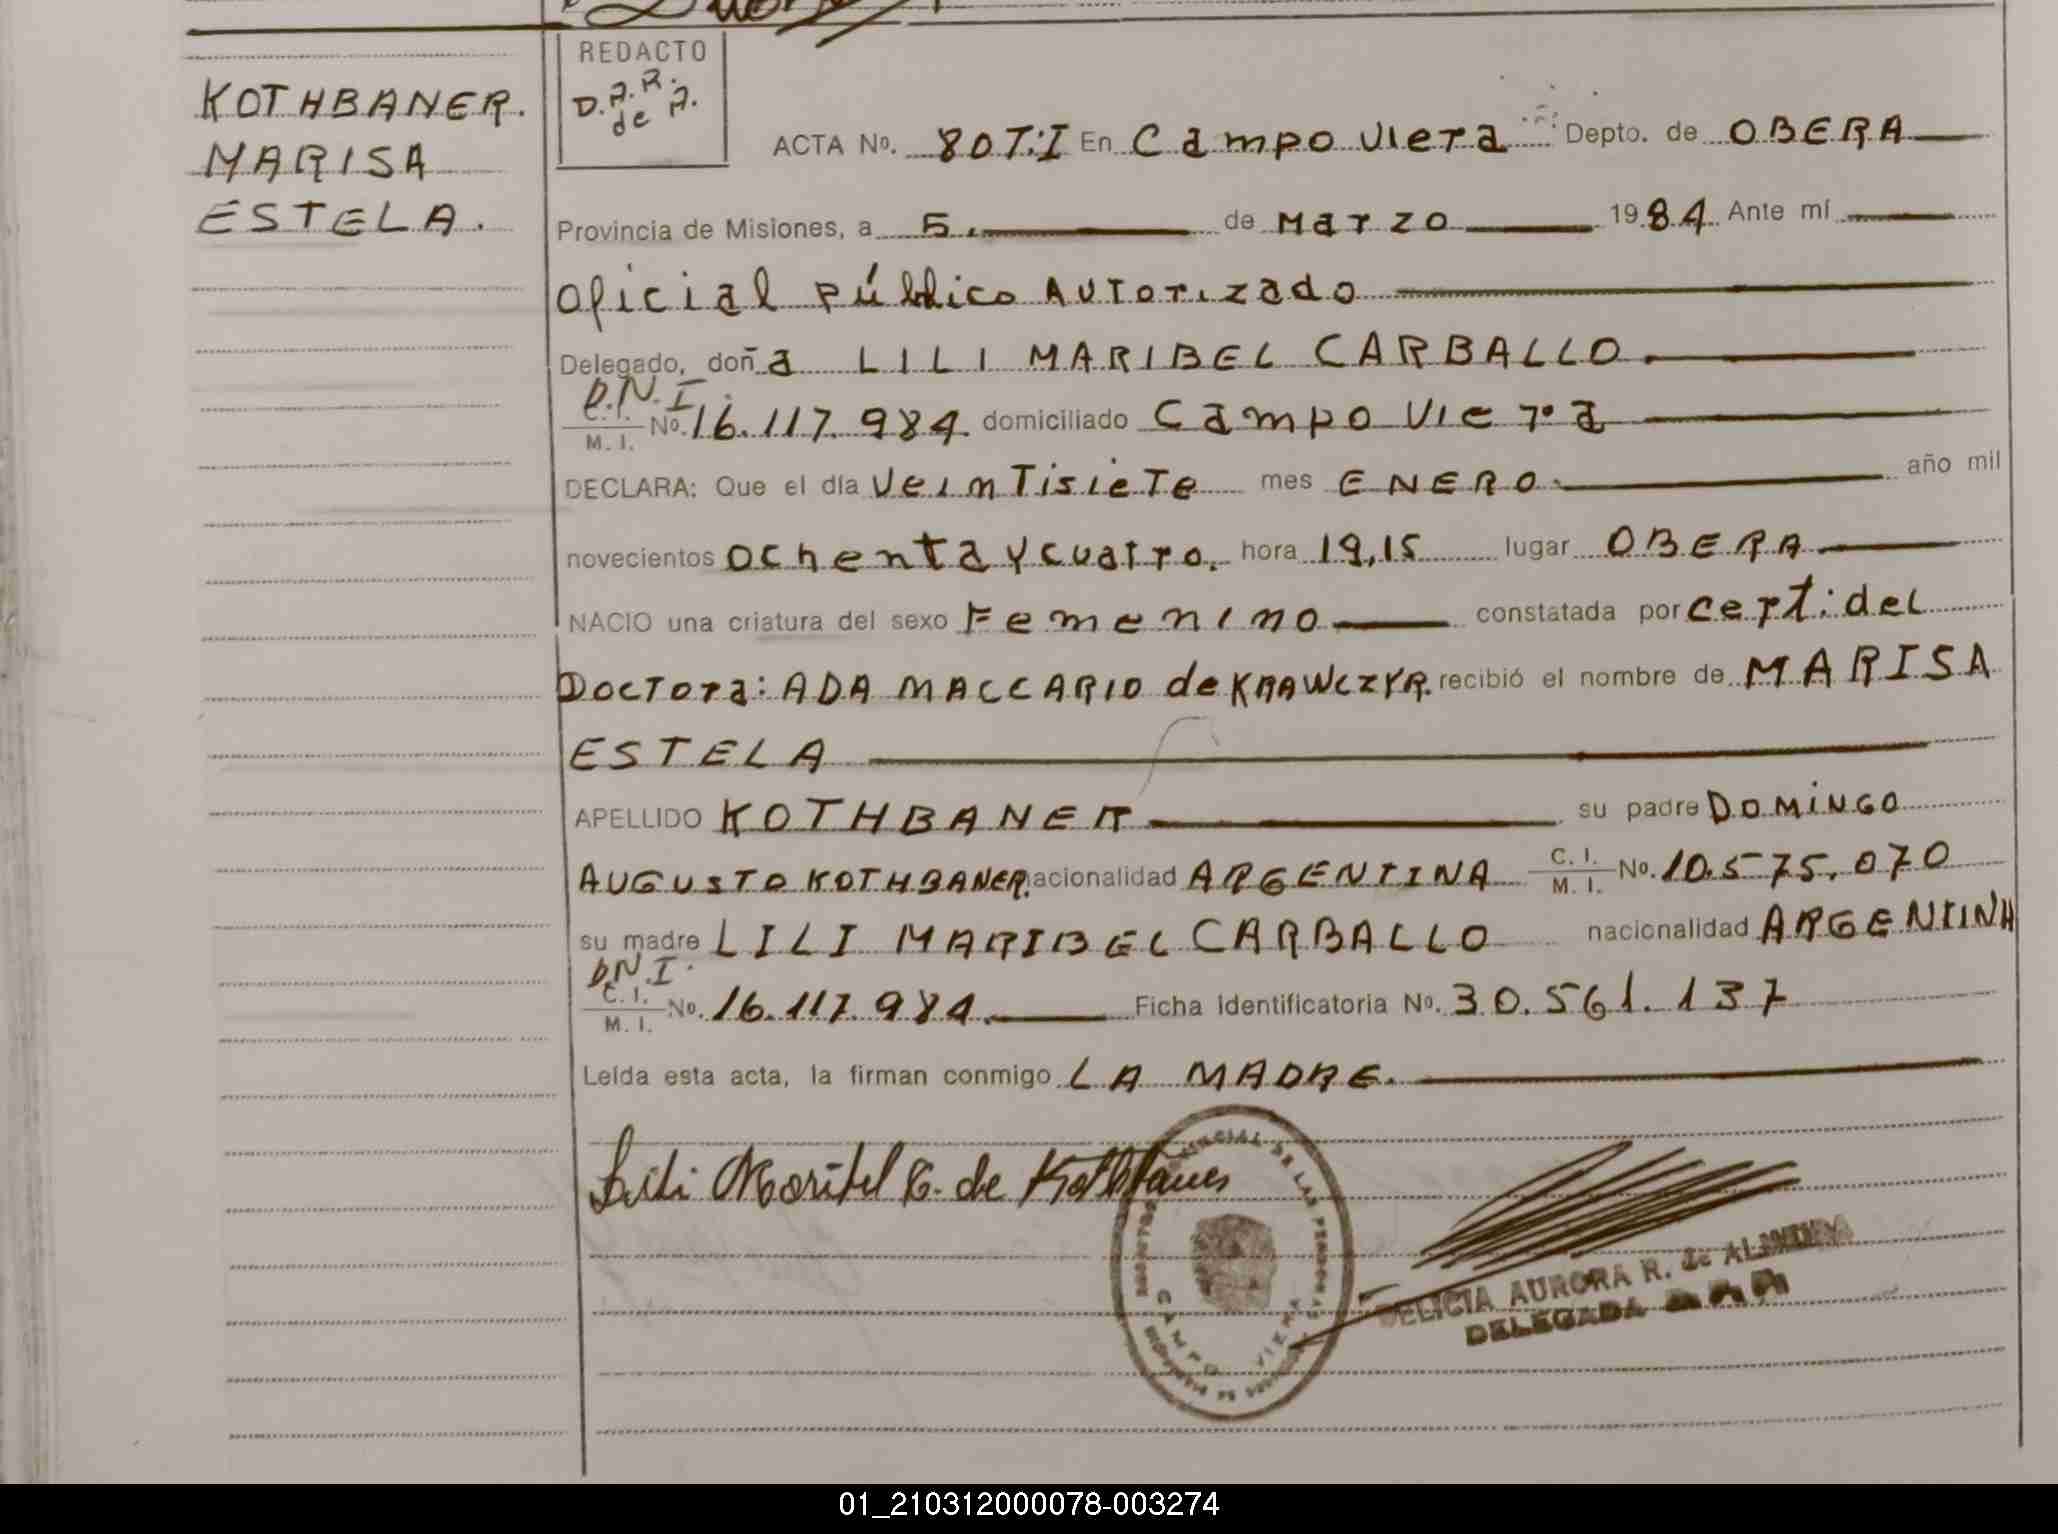 REDACTO
D.A.R. de A.
KOTHBANER.
MARISA
ESTELA.
ACTA No. 80T:I En Campo Viera Depto. de OBERA
Provincia de Misiones, a 5. de Marzo 1984 Ante mí
Oficial Público Autorizado
Delegado, doña LILI MARIBEL CARBALLO.
D.N.I.
C. I. / M. I. No. 16.117.984. domiciliado Campo Viera
DECLARA: Que el día Veintisiete mes ENERO. año mil
novecientos Ochenta y cuatro. hora 19,15 lugar OBERA
NACIO una criatura del sexo Femenino constatada por cert: del
Doctora: ADA MACCARIO de KRAWCZYK. recibió el nombre de MARISA
ESTELA
APELLIDO KOTHBANER su padre DOMINGO
AUGUSTO KOTHBANER. nacionalidad ARGENTINA C. I. / M. I. No. 10.575.070
su madre LILI MARIBEL CARBALLO nacionalidad ARGENTINA
D.N.I.
C. I. / M. I. No. 16.117.984. Ficha Identificatoria No. 30.561.137
Leída esta acta, la firman conmigo LA MADRE.
Lili Maribel C. de Kothbaner
PROVINCIAL DE LAS PERSONAS
CAMPO VIERA
FELICIA AURORA R. de ALMIDA
DELEGADA
01_210312000078-003274